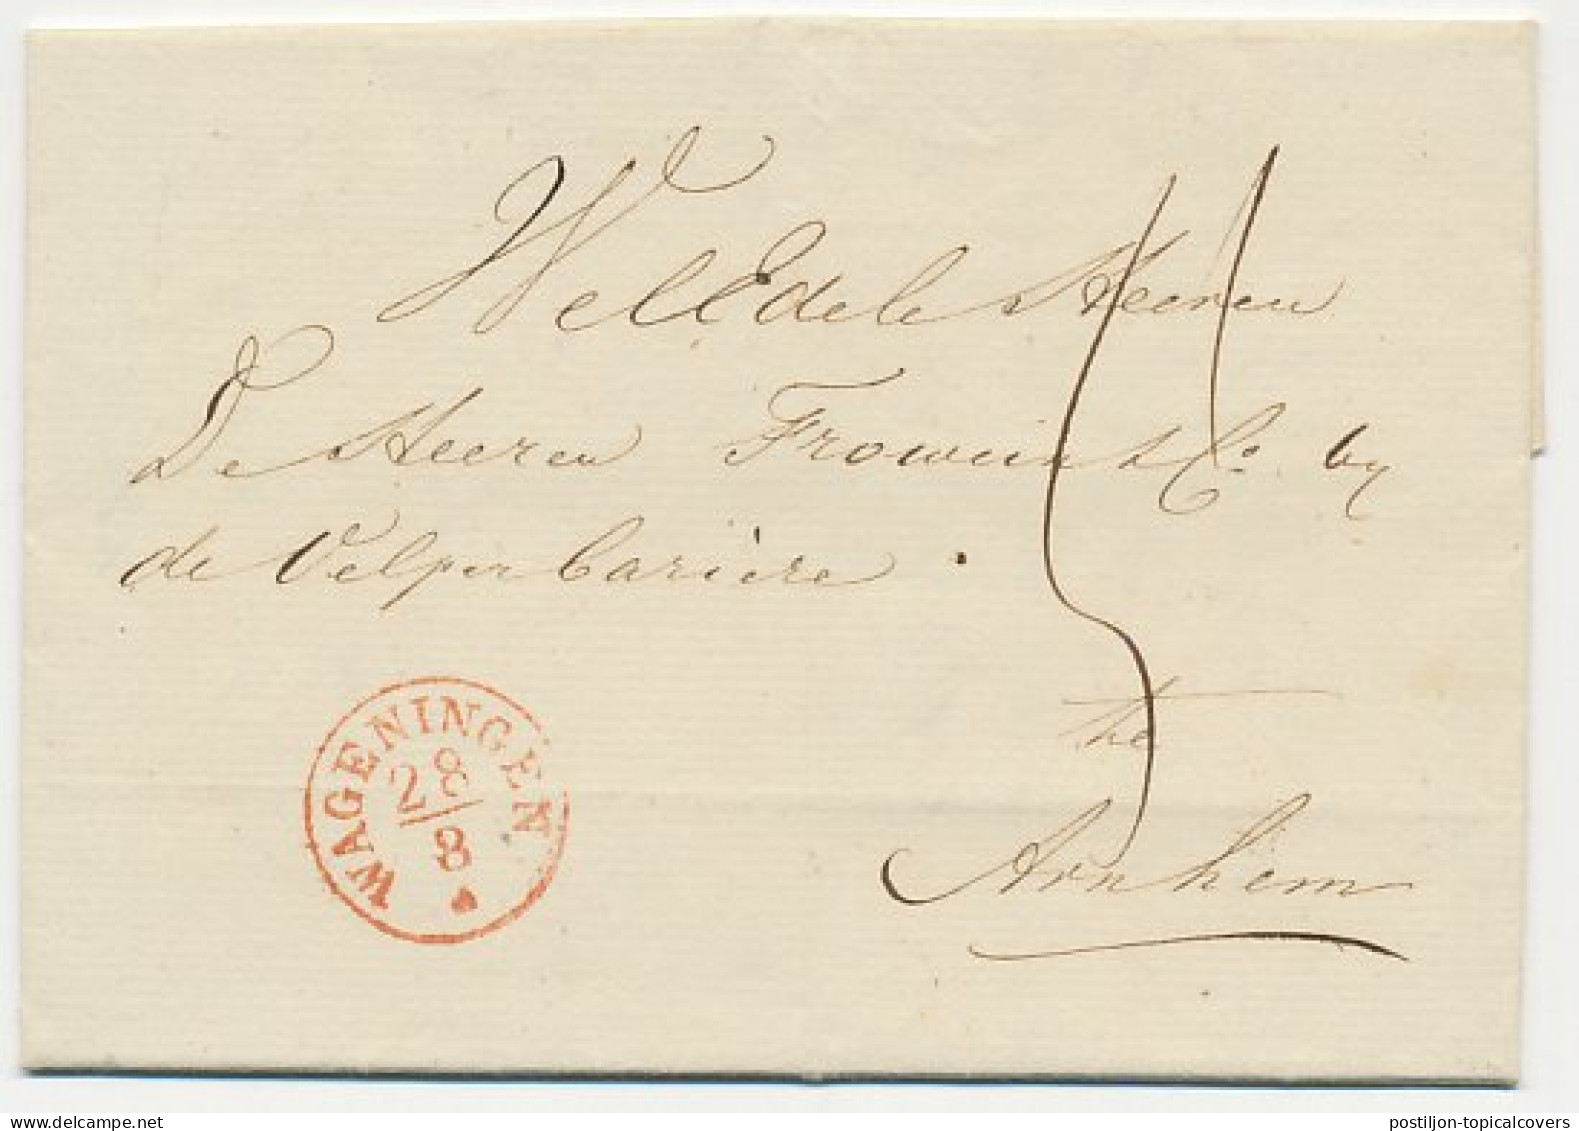 WelEdele Heeren
De Heeren Frowein & Co. by
de Velper barière.
te
Arnhem
WAGENINGEN
28/8
5
postiljon-topicalcovers